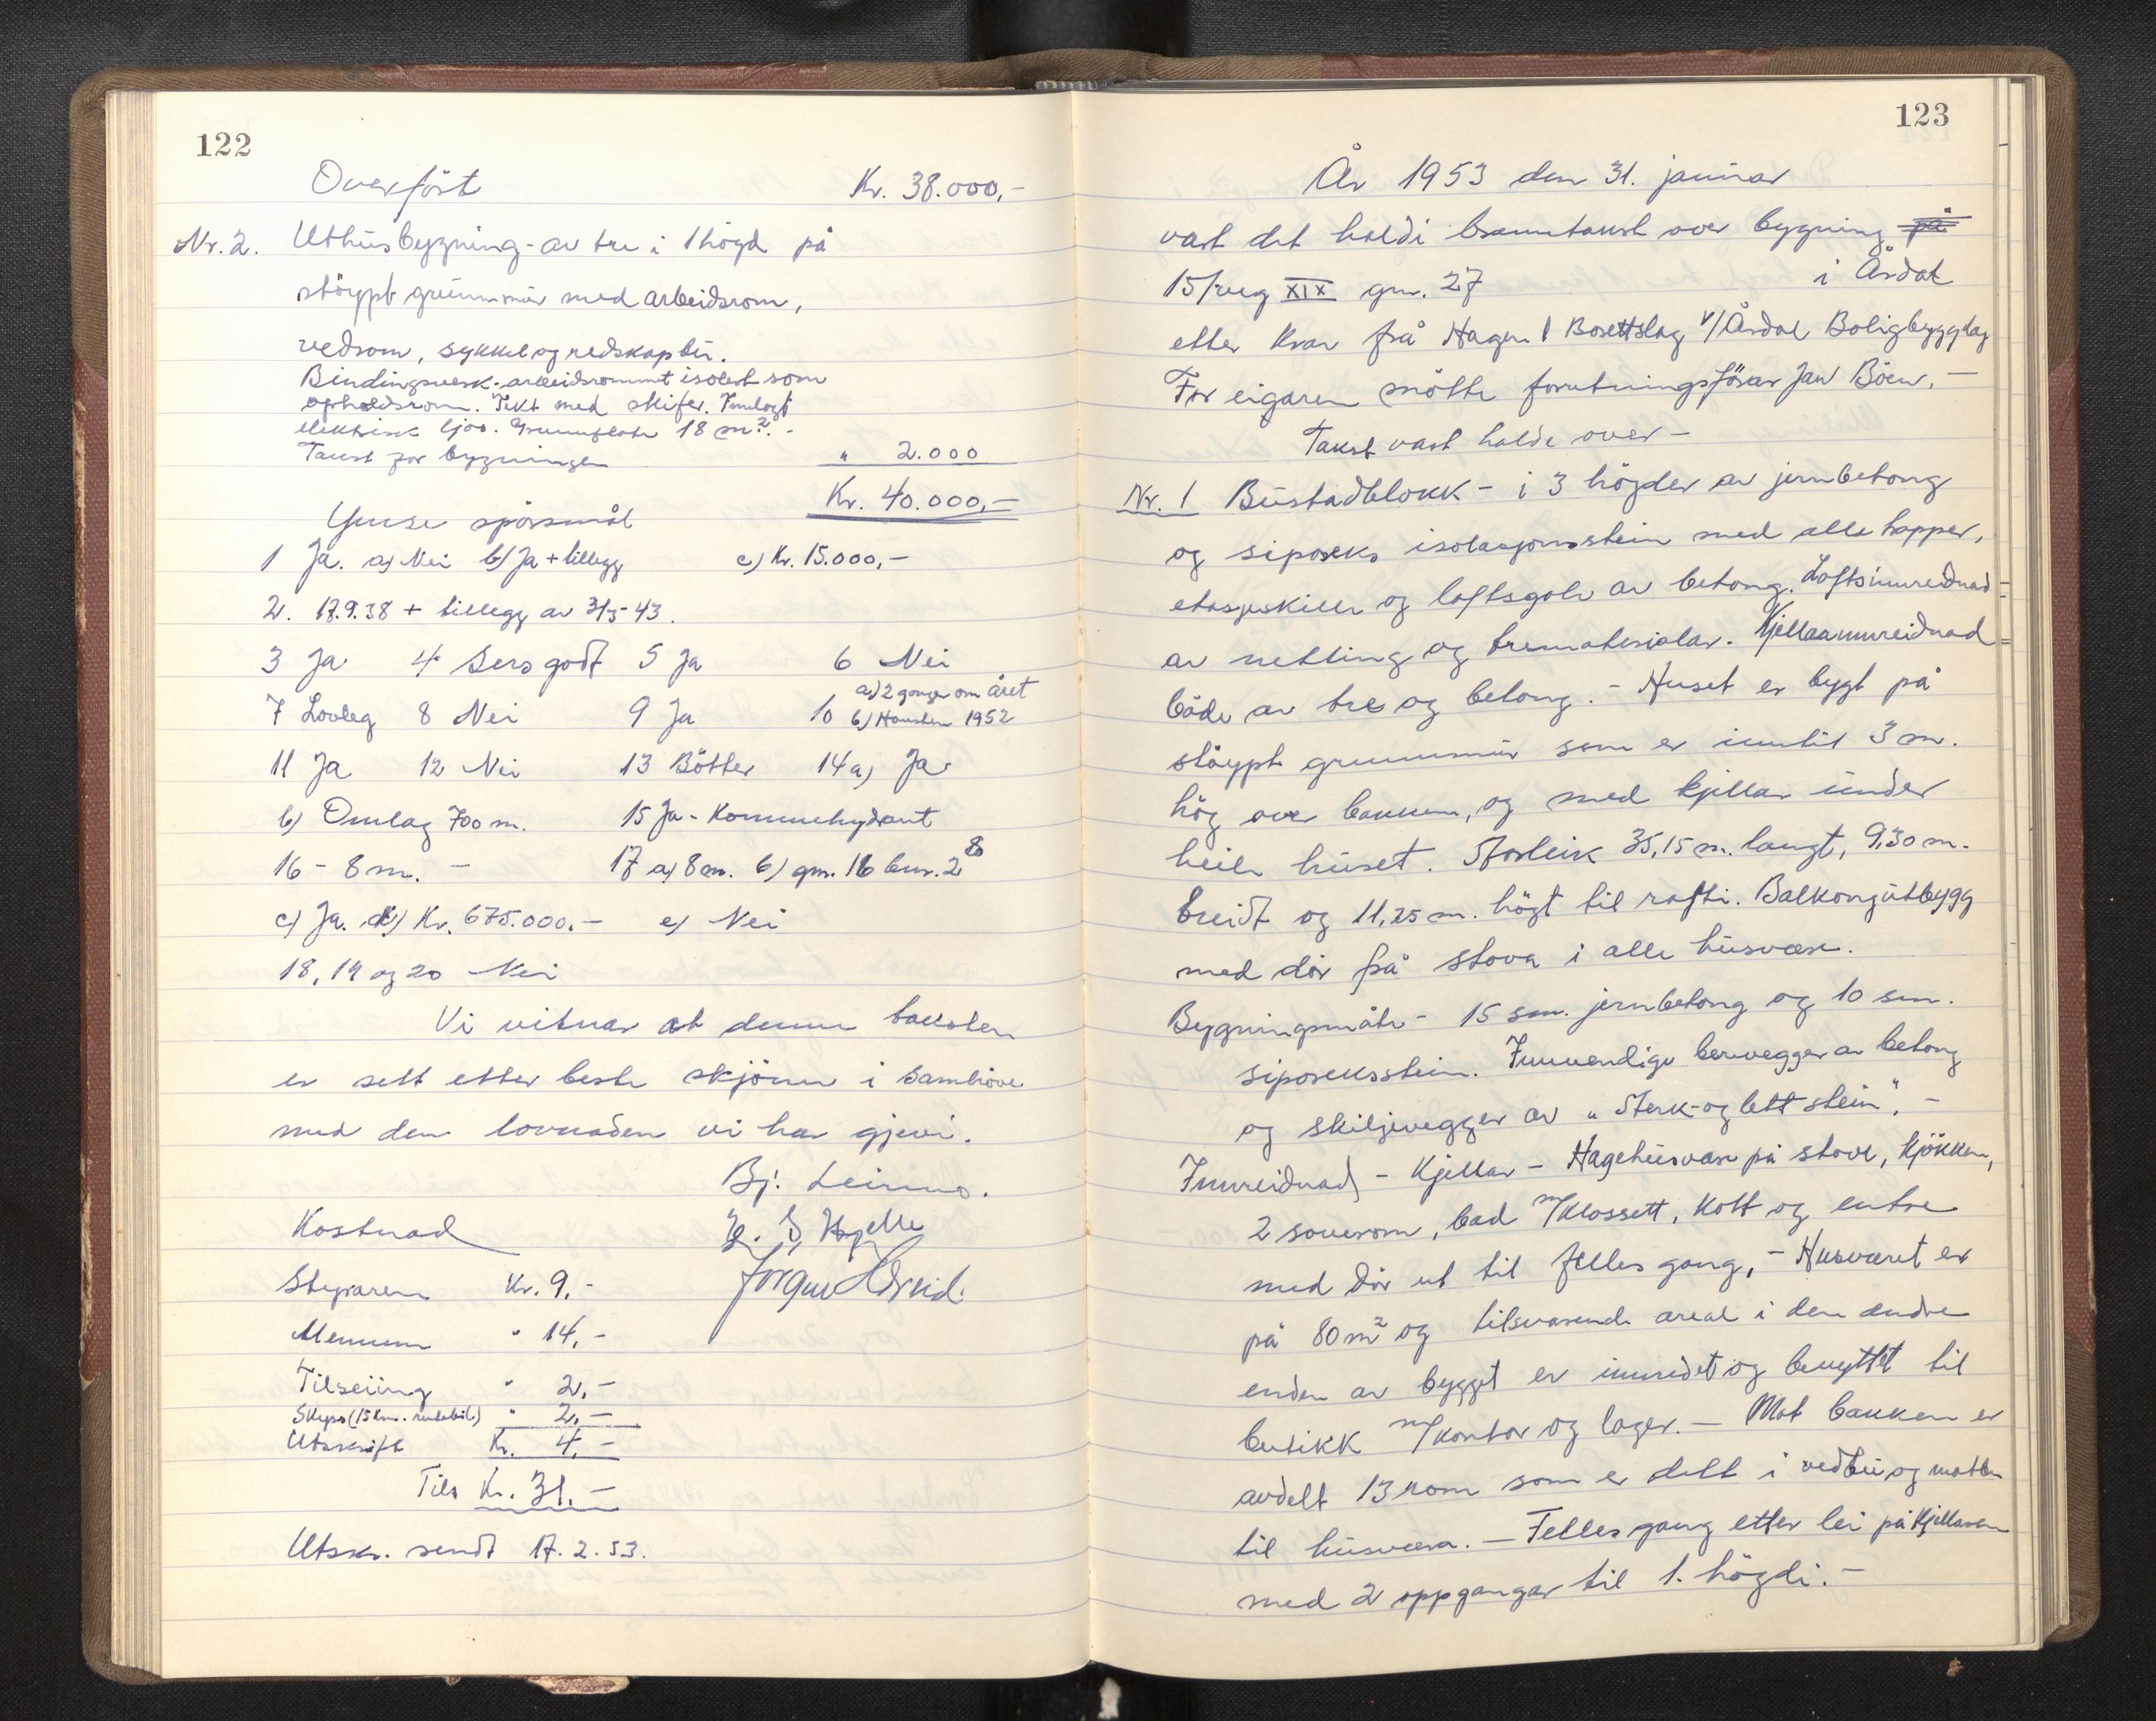 122
Overfört Kr. 38.000,-
Nr. 2. Uthusbygning - av tre i 1 högd på
støypt grunnmur med arbeidsrom,
vedrom, sykkel og redskapbu.
Bindingsverk - arbeidsrommet isolert som
opholdsrom. Tekt med skifer. Innlagt
elektrisk ljos. Grunnflate 18 m². -
Takst for bygningen " 2.000
Kr. 40.000,-
Ymse spörsmål
1 Ja. a) Nei b) Ja + tillegg c) Kr. 15.000,-
2. 17.9.38 + tillegg av 3/5-43.
3 Ja 4 Sers godt 5 Ja 6 Nei
7 Lovleg 8 Nei 9 Ja 10 a) 2 gonger om året
b) Hausten 1952
11 Ja 12 Nei 13 Bötter 14 a) Ja
b) Omlag 700 m. 15 Ja - Kommehydrant
16 - 8 m. - 17 a) 8 m. b) gnr. 16 bnr. 2 80
c) Ja. d) Kr. 675.000.- e) Nei
18, 19 og 20 Nei
Vi vitnar at denne taksten
er sett etter beste skjönn i samhöve
med den lovnaden vi har gjevi.
Bj. Leirmo.
Kostnad
Styraren Kr. 9.-
Mennene " 14,-
Tilseiing " 2,-
Skyss (15 km. rutebil) " 2,-
Utskrift Kr. 4,-
Tils Kr. 31.-
Utskr. sendt 17. 2. 53.
123
År 1953 den 31. januar
vart det haldi branntakst over bygning på
15/rug XIX gnr. 27 i Årdal
etter krav frå Hagen 1 Borettslag v/Årdal Boligbygglag
For eigaren mötte forretningsförer Jan Böen. -
Takst vart halde over -
Nr. 1 Bustadblokk - i 3 högder av jernbetong
og siporeks isolasjonsstein med alle trapper,
etasjeskille og loftsgolv av betong. Loftsinnreidnad =
av netting og trematerialar. Kjellarinnreidnad =
både av tre og betong. - Huset er bygt på
støypt grunnmur som er inntil 3 m.
hög over bakken, og med kjellar under
heile huset. Storleik 35,15 m. langt, 9,30 m.
breidt og 11,25 m. högt til rafti. Balkongutbygg
med dör frå stova i alle husvære.
Bygningsmåte - 15 sm. jernbetong og 10 sm.
siporeksstein. Innvendige berevegger av betong
og skiljevegger av „Sterk- og lett stein". -
Innreidnad - Kjellar - Hagehusvære på stove, kjökken,
2 soverom, bad m/klossett, kott og entre
med dör ut til felles gang, - Husværet er
på 80 m² og tilsvarende areal i den andre
enden av bygget er innredet og benyttet til
butikk m/kontor og lager. - Mot bakken er
avdelt 13 rom som er delt i vedbu og matbu
til husværa. - Felles gang etter lei på kjellaren
med 2 oppgangar til 1. högdi. -